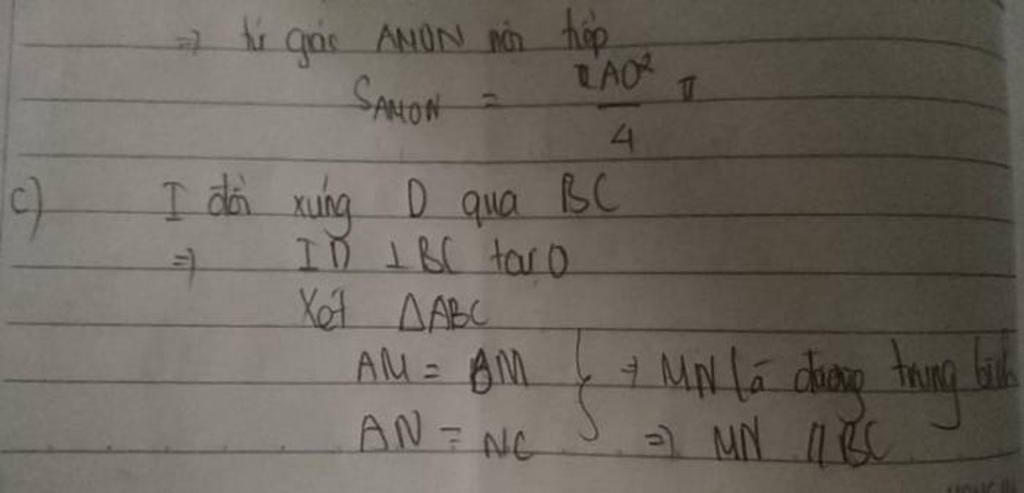 => tứ giác AMON nội tiếp
S_AMON = πAO²/4 π
c) I đối xứng D qua BC
=> ID ⊥ BC tại O
Xét △ABC
AM = BM } → MN là đường trung bình
AN = NC => MN // BC